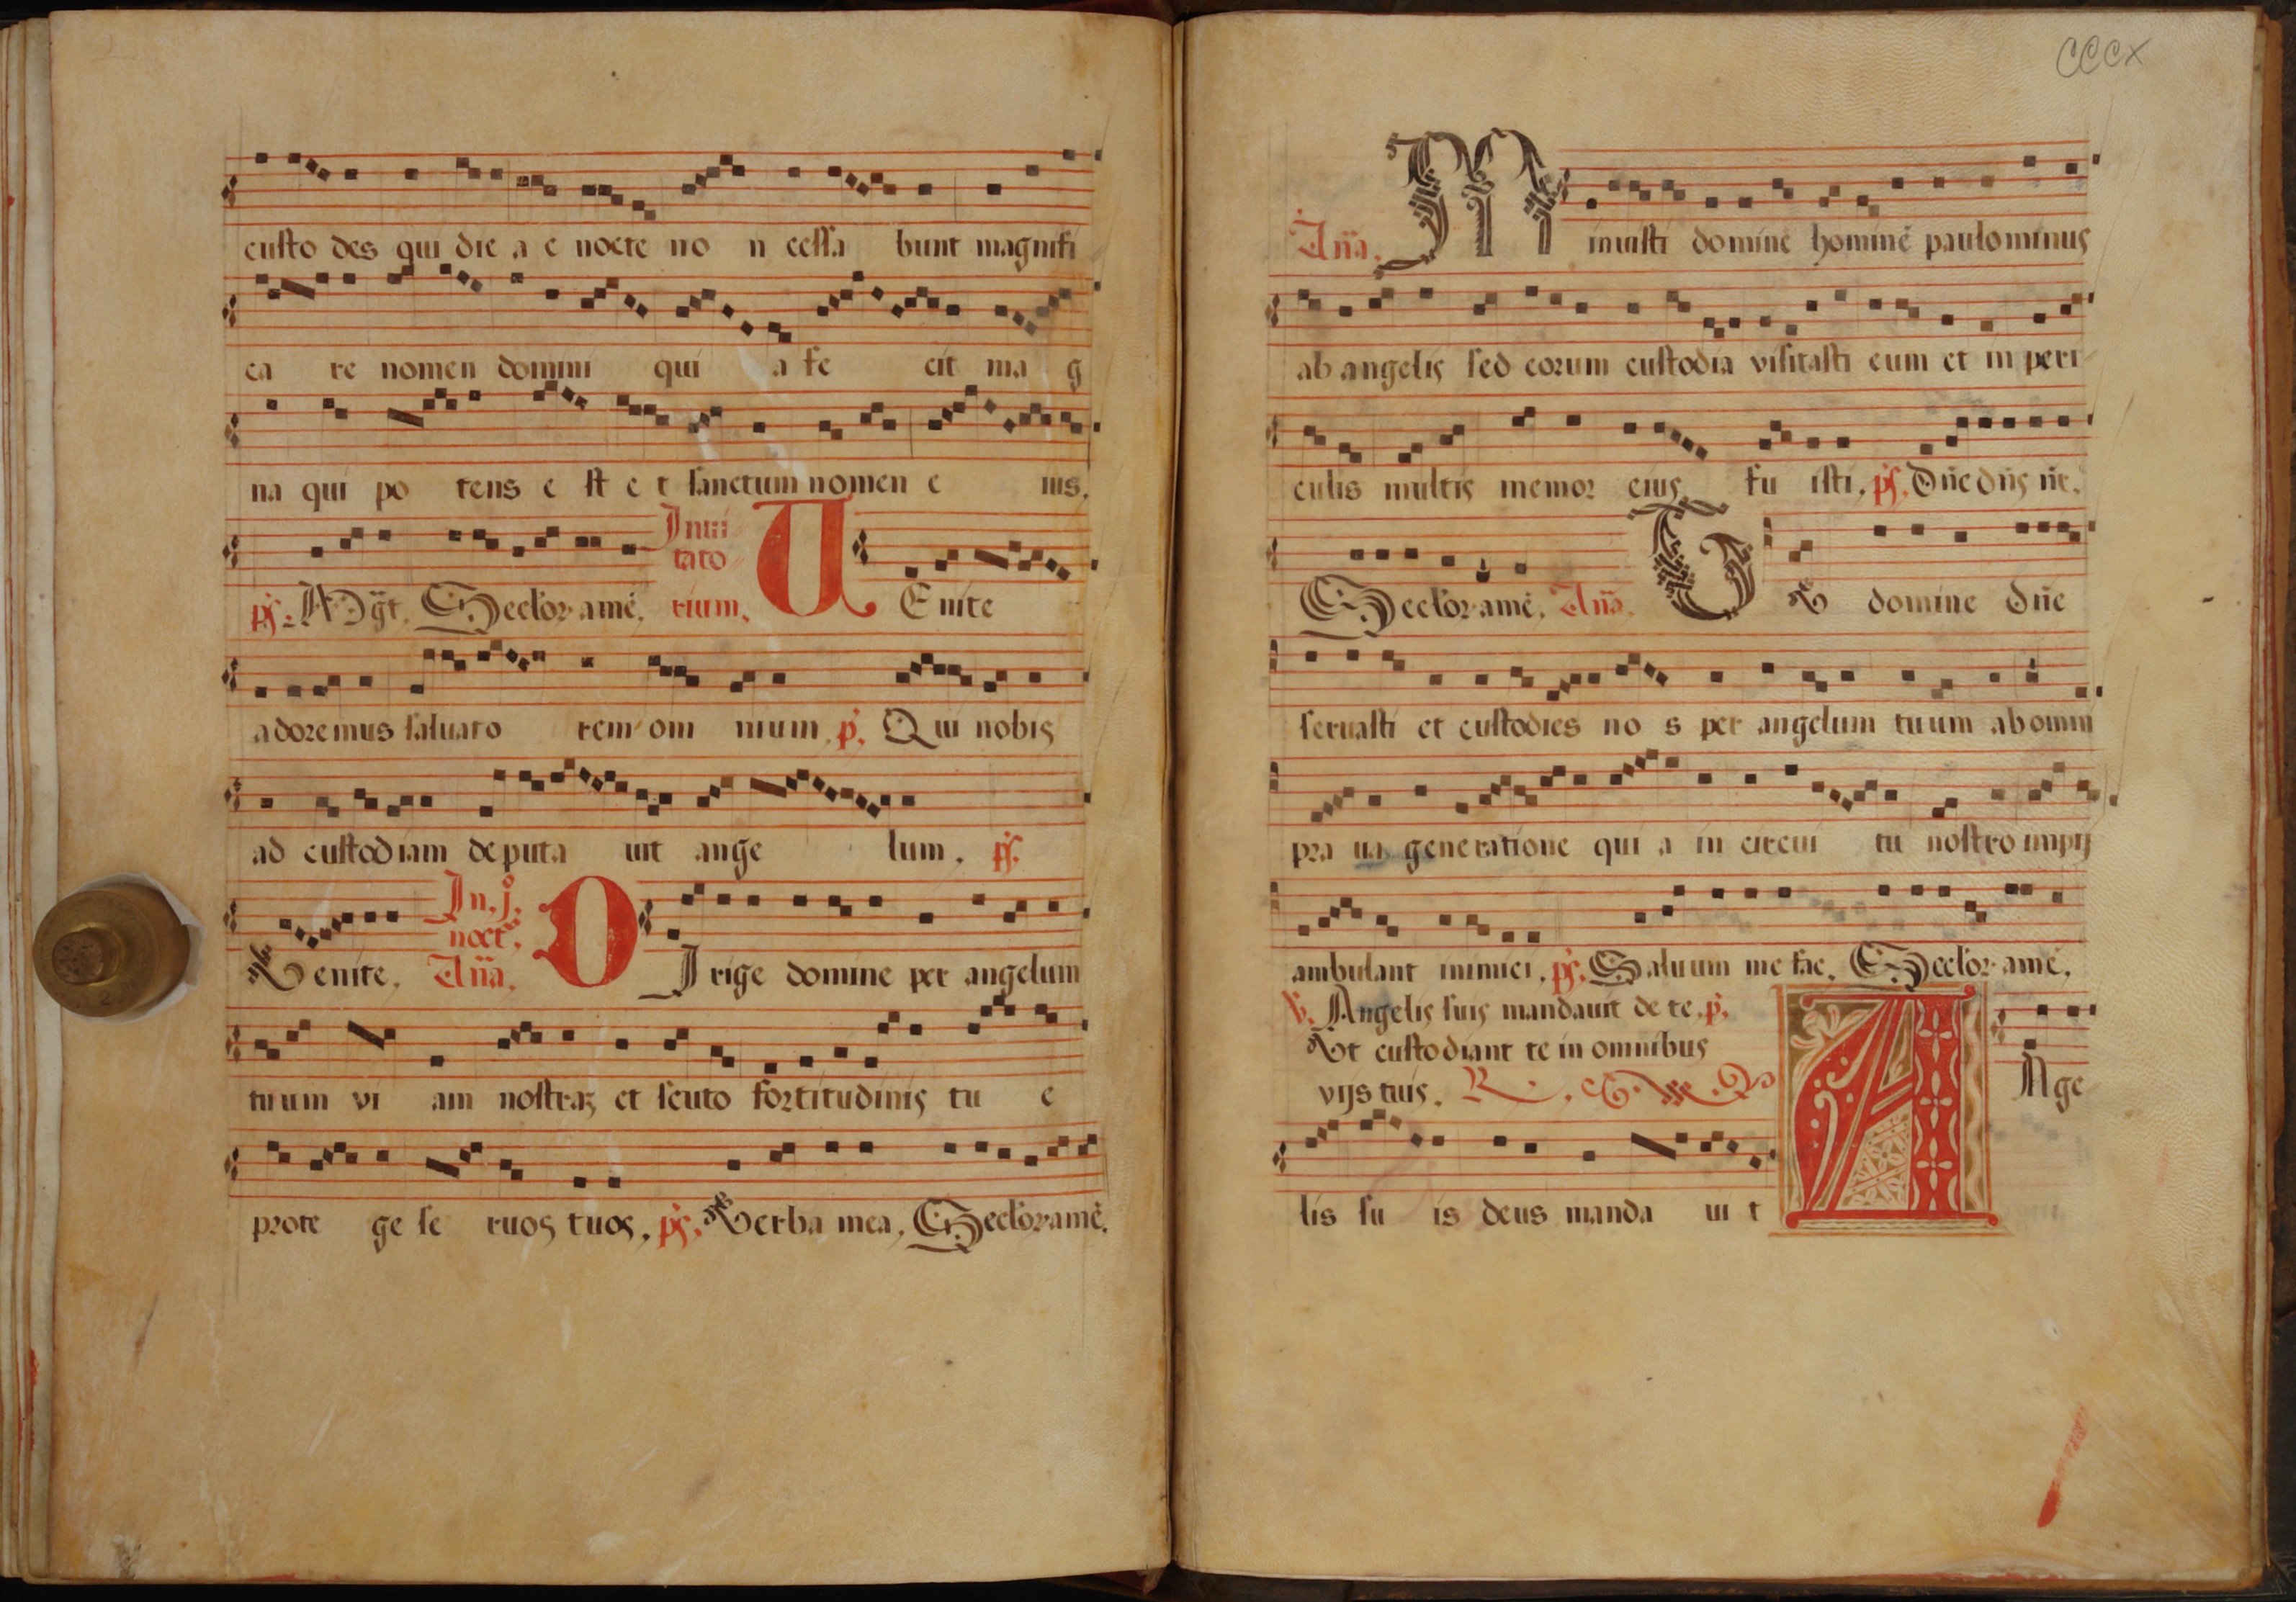 custo des qui die a e nocte no n cessa bunt magnifi
ca re nomen domini qui a fe cit ma g
na qui po tens e st e t sanctum nomen e ius.
ps. Mg̅t. Seclor amē. Inui
tato
rium. V Enite
adoremus saluato rem om nium. p. Qui nobis
ad custodiam deputa uit ange lum. ps.
Venite. In .j.
noct̅.
An̅a. D Irige domine per angelum
tuum vi am nostraꝫ et scuto fortitudinis tu e
prote ge se ruos tuos. ps. Verba mea. Seclor amē.
CCCX
An̅a. M inuisti domine hominē paulominus
ab angelis sed eorum custodia visitasti eum et in peri
culis multis memor eius fu isti. ps. Dn̅e dn̅s nr̅.
Seclor amē. An̅a. T V domine dn̅e
seruasti et custodies no s per angelum tuum ab omni
pra ua generatione qui a in circui tu nostro impij
ambulant inimici. ps. Saluum me fac. Seclor amē.
V. Angelis suis mandauit de te. p.
Vt custodiant te in omnibus
vijs tuis. R. A Nge
lis su is deus manda ui t